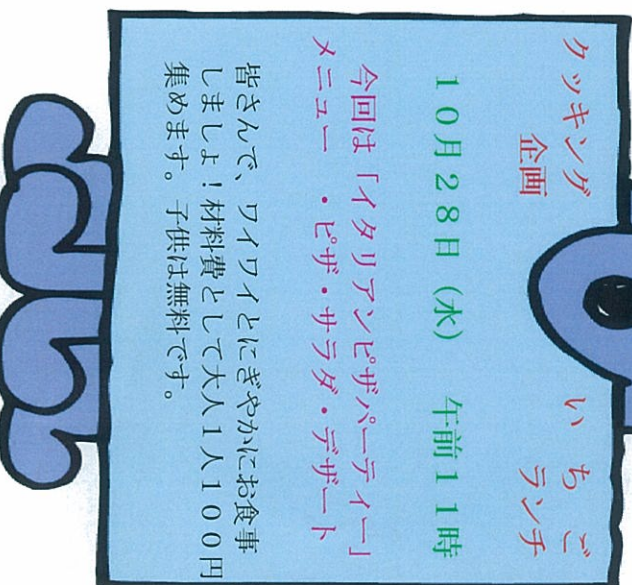 クッキング　いちご
企画　ランチ
10月28日（水）　午前11時
今回は「イタリアンピザパーティー」
メニュー　・ピザ・サラダ・デザート
皆さんで、ワイワイとにぎやかにお食事
しましょ！材料費として大人1人100円
集めます。子供は無料です。